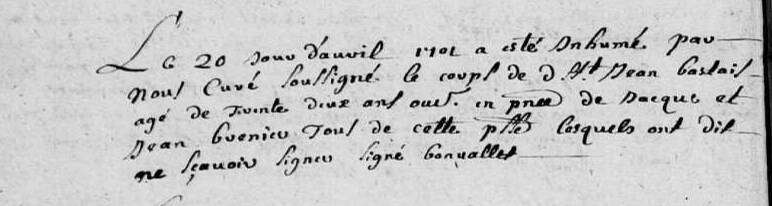 Le 20 Jour d'avril 1701 a esté Inhumé par
nous Curé soussigné le corps de d Jean bastais
agé de trente deux ans ou en pnce de Jacque et
Jean Grenier tous de cette psse lesquels ont dit
ne sçavoir signer signé bonvallet